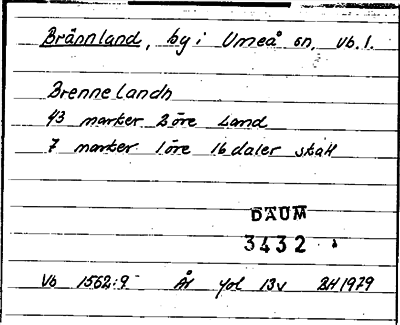 Brännland, by i Umeå sn, Vb. l.
Brennelandh
43 marker 2 öre Land
7 marker 1 öre 16 daler skatt
DAUM
3432
Vb 1562:9 År fol 13v BH 1979